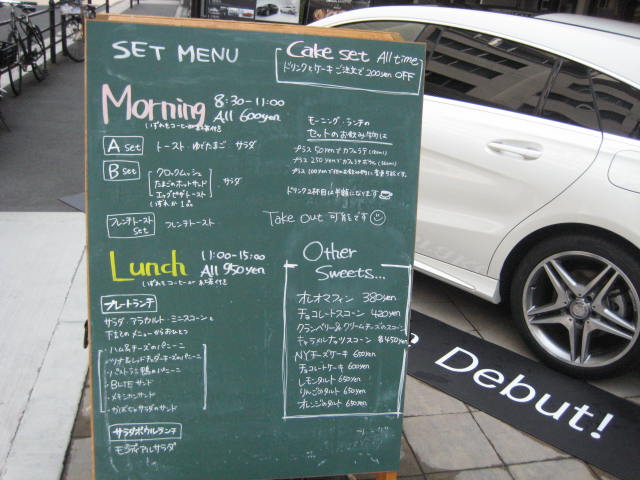 SET MENU
Cake set All time
ドリンクとケーキご注文で200yen OFF
Morning 8:30-11:00
All 600yen
いずれもコーヒーor紅茶付き
A set トースト・ゆでたまご サラダ
B set
クロックムッシュ
たまごのホットサンド
エッグピザトースト
いずれか1品
サラダ
フレンチトースト set フレンチトースト
モーニング・ランチの
セットのお飲み物は
プラス50yenでカフェラテ
プラス250yenでカフェラテボウル
プラス100yenで他のお飲み物に変更可能です。
ドリンク2杯目は半額になります
Take out 可能です
Lunch 11:00-15:00
All 950yen
いずれもコーヒーor紅茶付き
プレートランチ
サラダ・アラカルト・ミニスコーンと
下記のメニューからおひとつ
・ハム&チーズのパニーニ
&レッドチェダーチーズのパニーニ
・パストラミ鴨のパニーニ
・BLTEサンド
・メキシカンサンド
・かぼちゃサラダのサンド
サラダボウルランチ
モンディアルサラダ
Other
Sweets...
オレオマフィン 380yen
チョコレートスコーン 420yen
クランベリー&クリームチーズのスコーン
キャラメルナッツスコーン 各450yen
NYチーズケーキ 600yen
チョコレートケーキ 600yen
レモンタルト 650yen
りんごのタルト 650yen
オレンジのタルト 650yen
Debut!